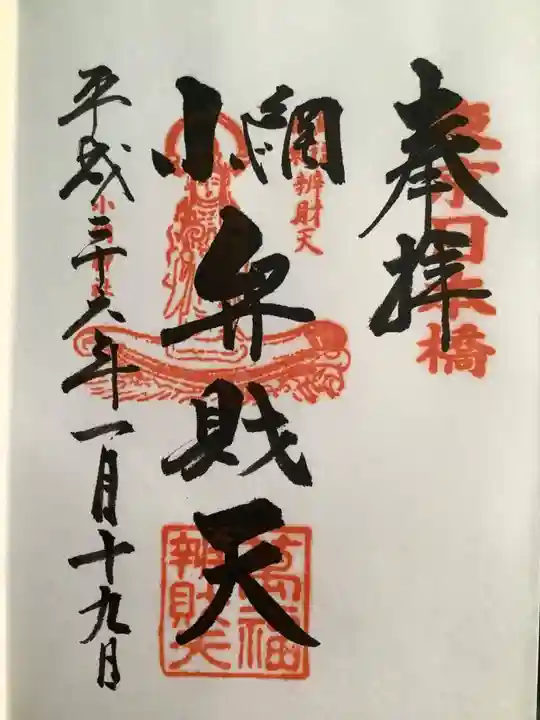 奉拝
東京日本橋
小網
弁財天
辨財天
萬福
辨財天
平成二十六年一月十九日